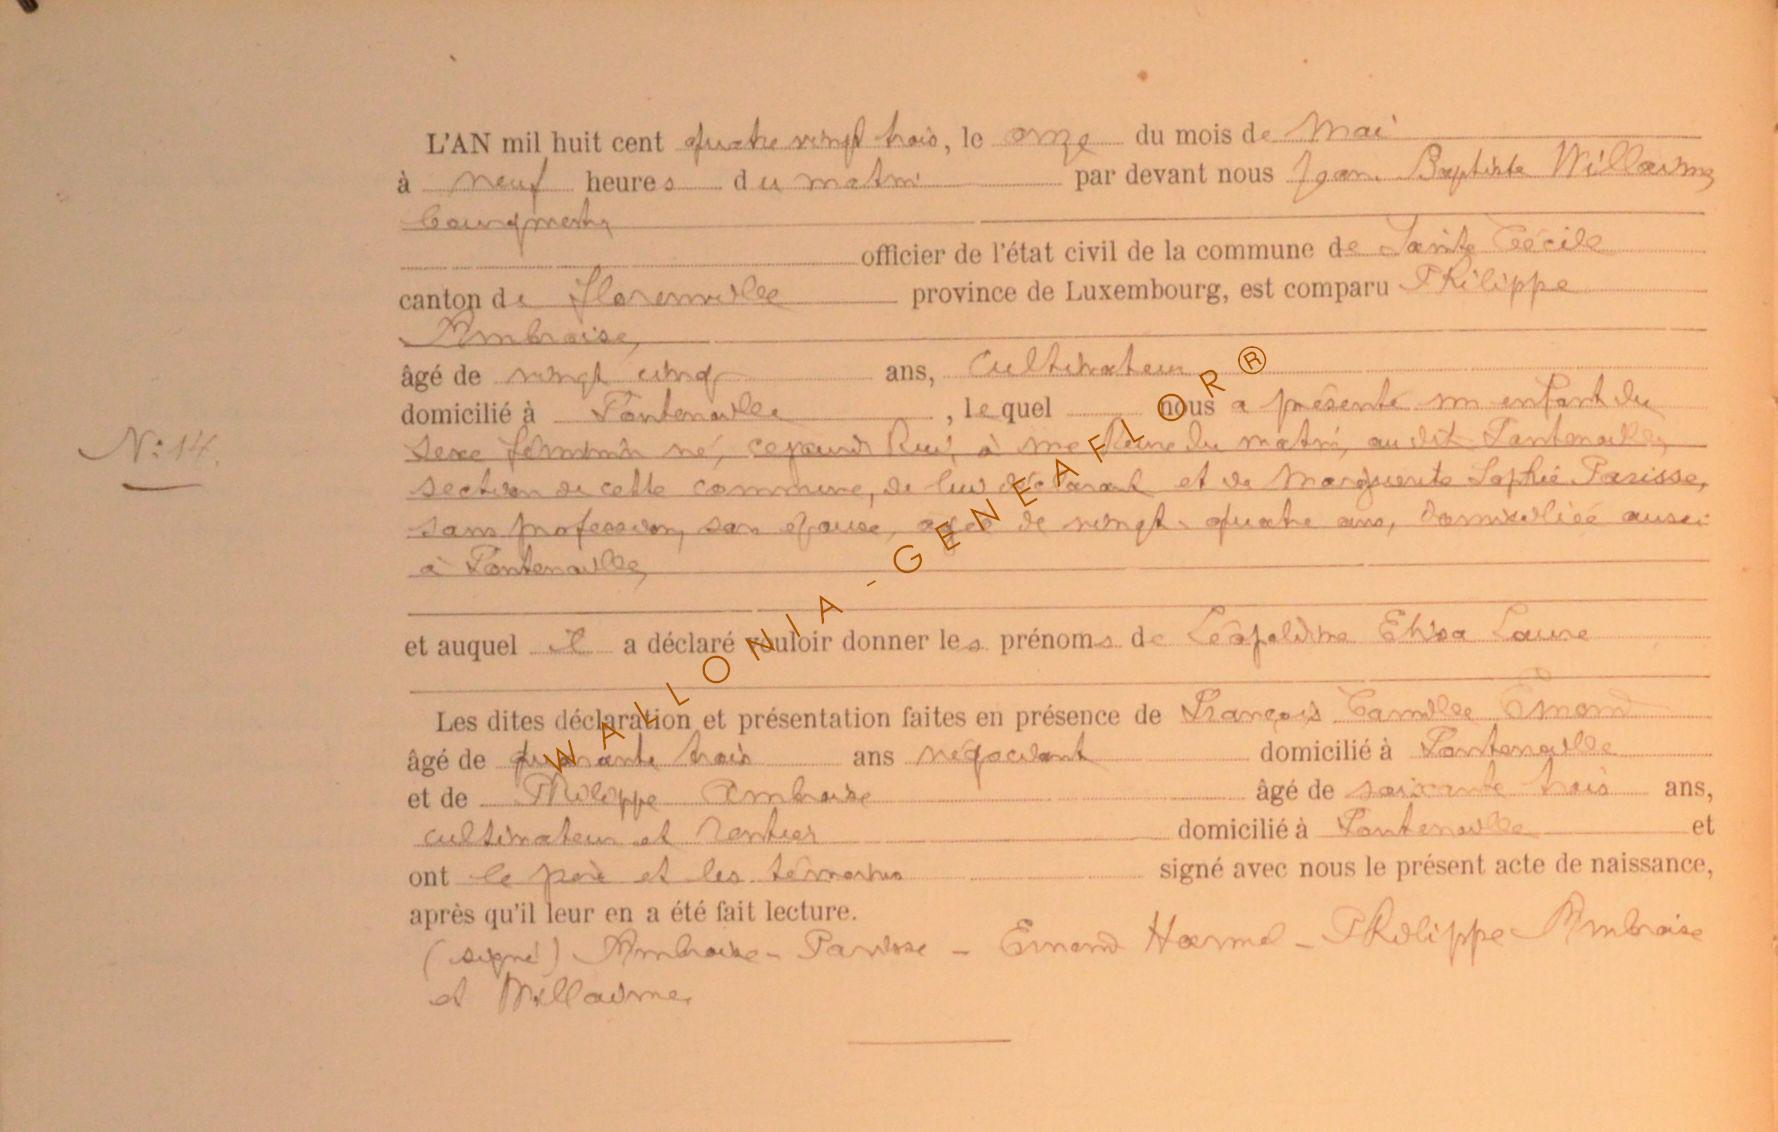 L'AN mil huit cent quatre vingt trois, le onze du mois de Mai
à neuf heures du matin par devant nous Jean Baptiste Willaume
bourgmestre
officier de l'état civil de la commune de Sainte Cécile
canton de Florenville province de Luxembourg, est comparu Philippe
Ambroise,
âgé de vingt cinq ans, Cultivateur
domicilié à Fontenoille, lequel nous a présenté un enfant du
N° 14.
sexe féminin né, cejourd'hui, à une heure du matin, au dit Fontenoille,
section de cette commune, de lui déclarant et de Marguerite Sophie Parisse,
sans profession, son épouse, agée de vingt-quatre ans, domiciliée aussi
à Fontenoille,
et auquel il a déclaré vouloir donner les prénoms de Léopoldine Elisa Laure
Les dites déclaration et présentation faites en présence de François Camille Emond
âgé de quarante trois ans négociant domicilié à Fontenoille
et de Philippe Ambroise âgé de soixante trois ans,
cultivateur et rentier domicilié à Fontenoille et
ont le père et les témoins signé avec nous le présent acte de naissance,
après qu'il leur en a été fait lecture.
(signé) Ambroise - Parisse - Emond Harmel - Philippe Ambroise
et Willaume,
WALLONIA-GENEAFLOR®